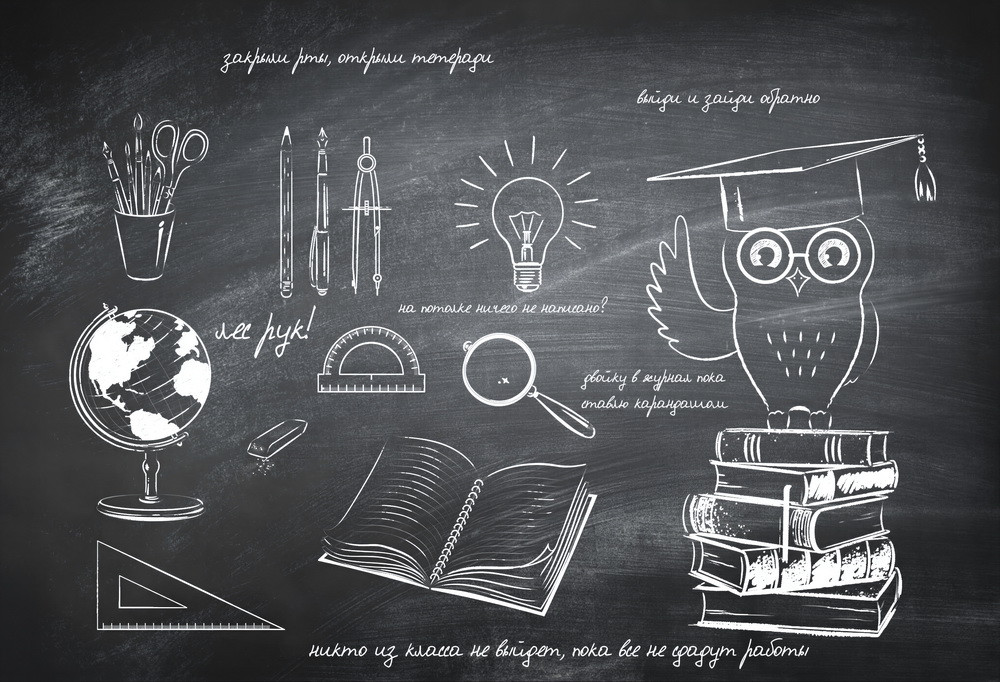 закрыли рты, открыли тетеради
выйди и зайди обратно
на потолке ничего не написано?
лес рук!
двойку в журнал пока
ставлю карандашом
никто из класса не выйдет, пока все не сдадут работы